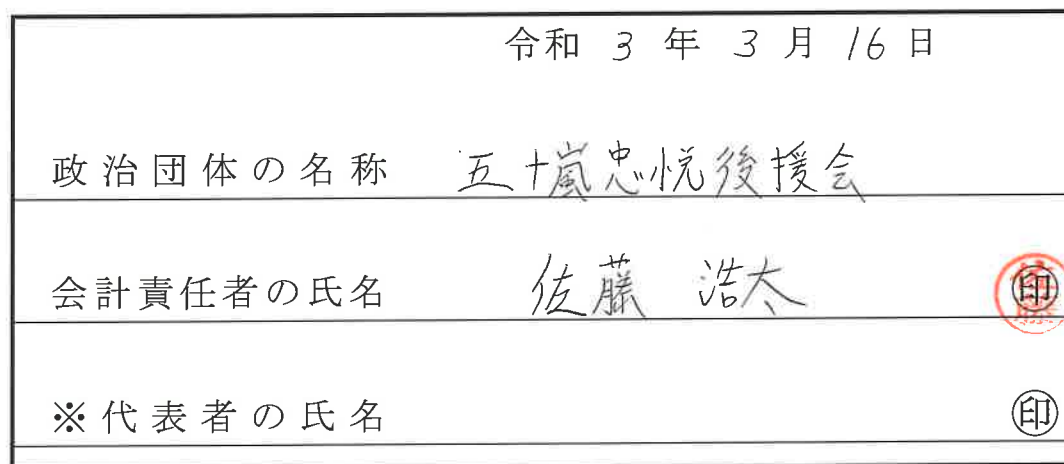 令和 3 年 3 月 16 日
政治団体の名称 五十嵐忠悦後援会
会計責任者の氏名 佐藤 浩太 印
※代表者の氏名 印